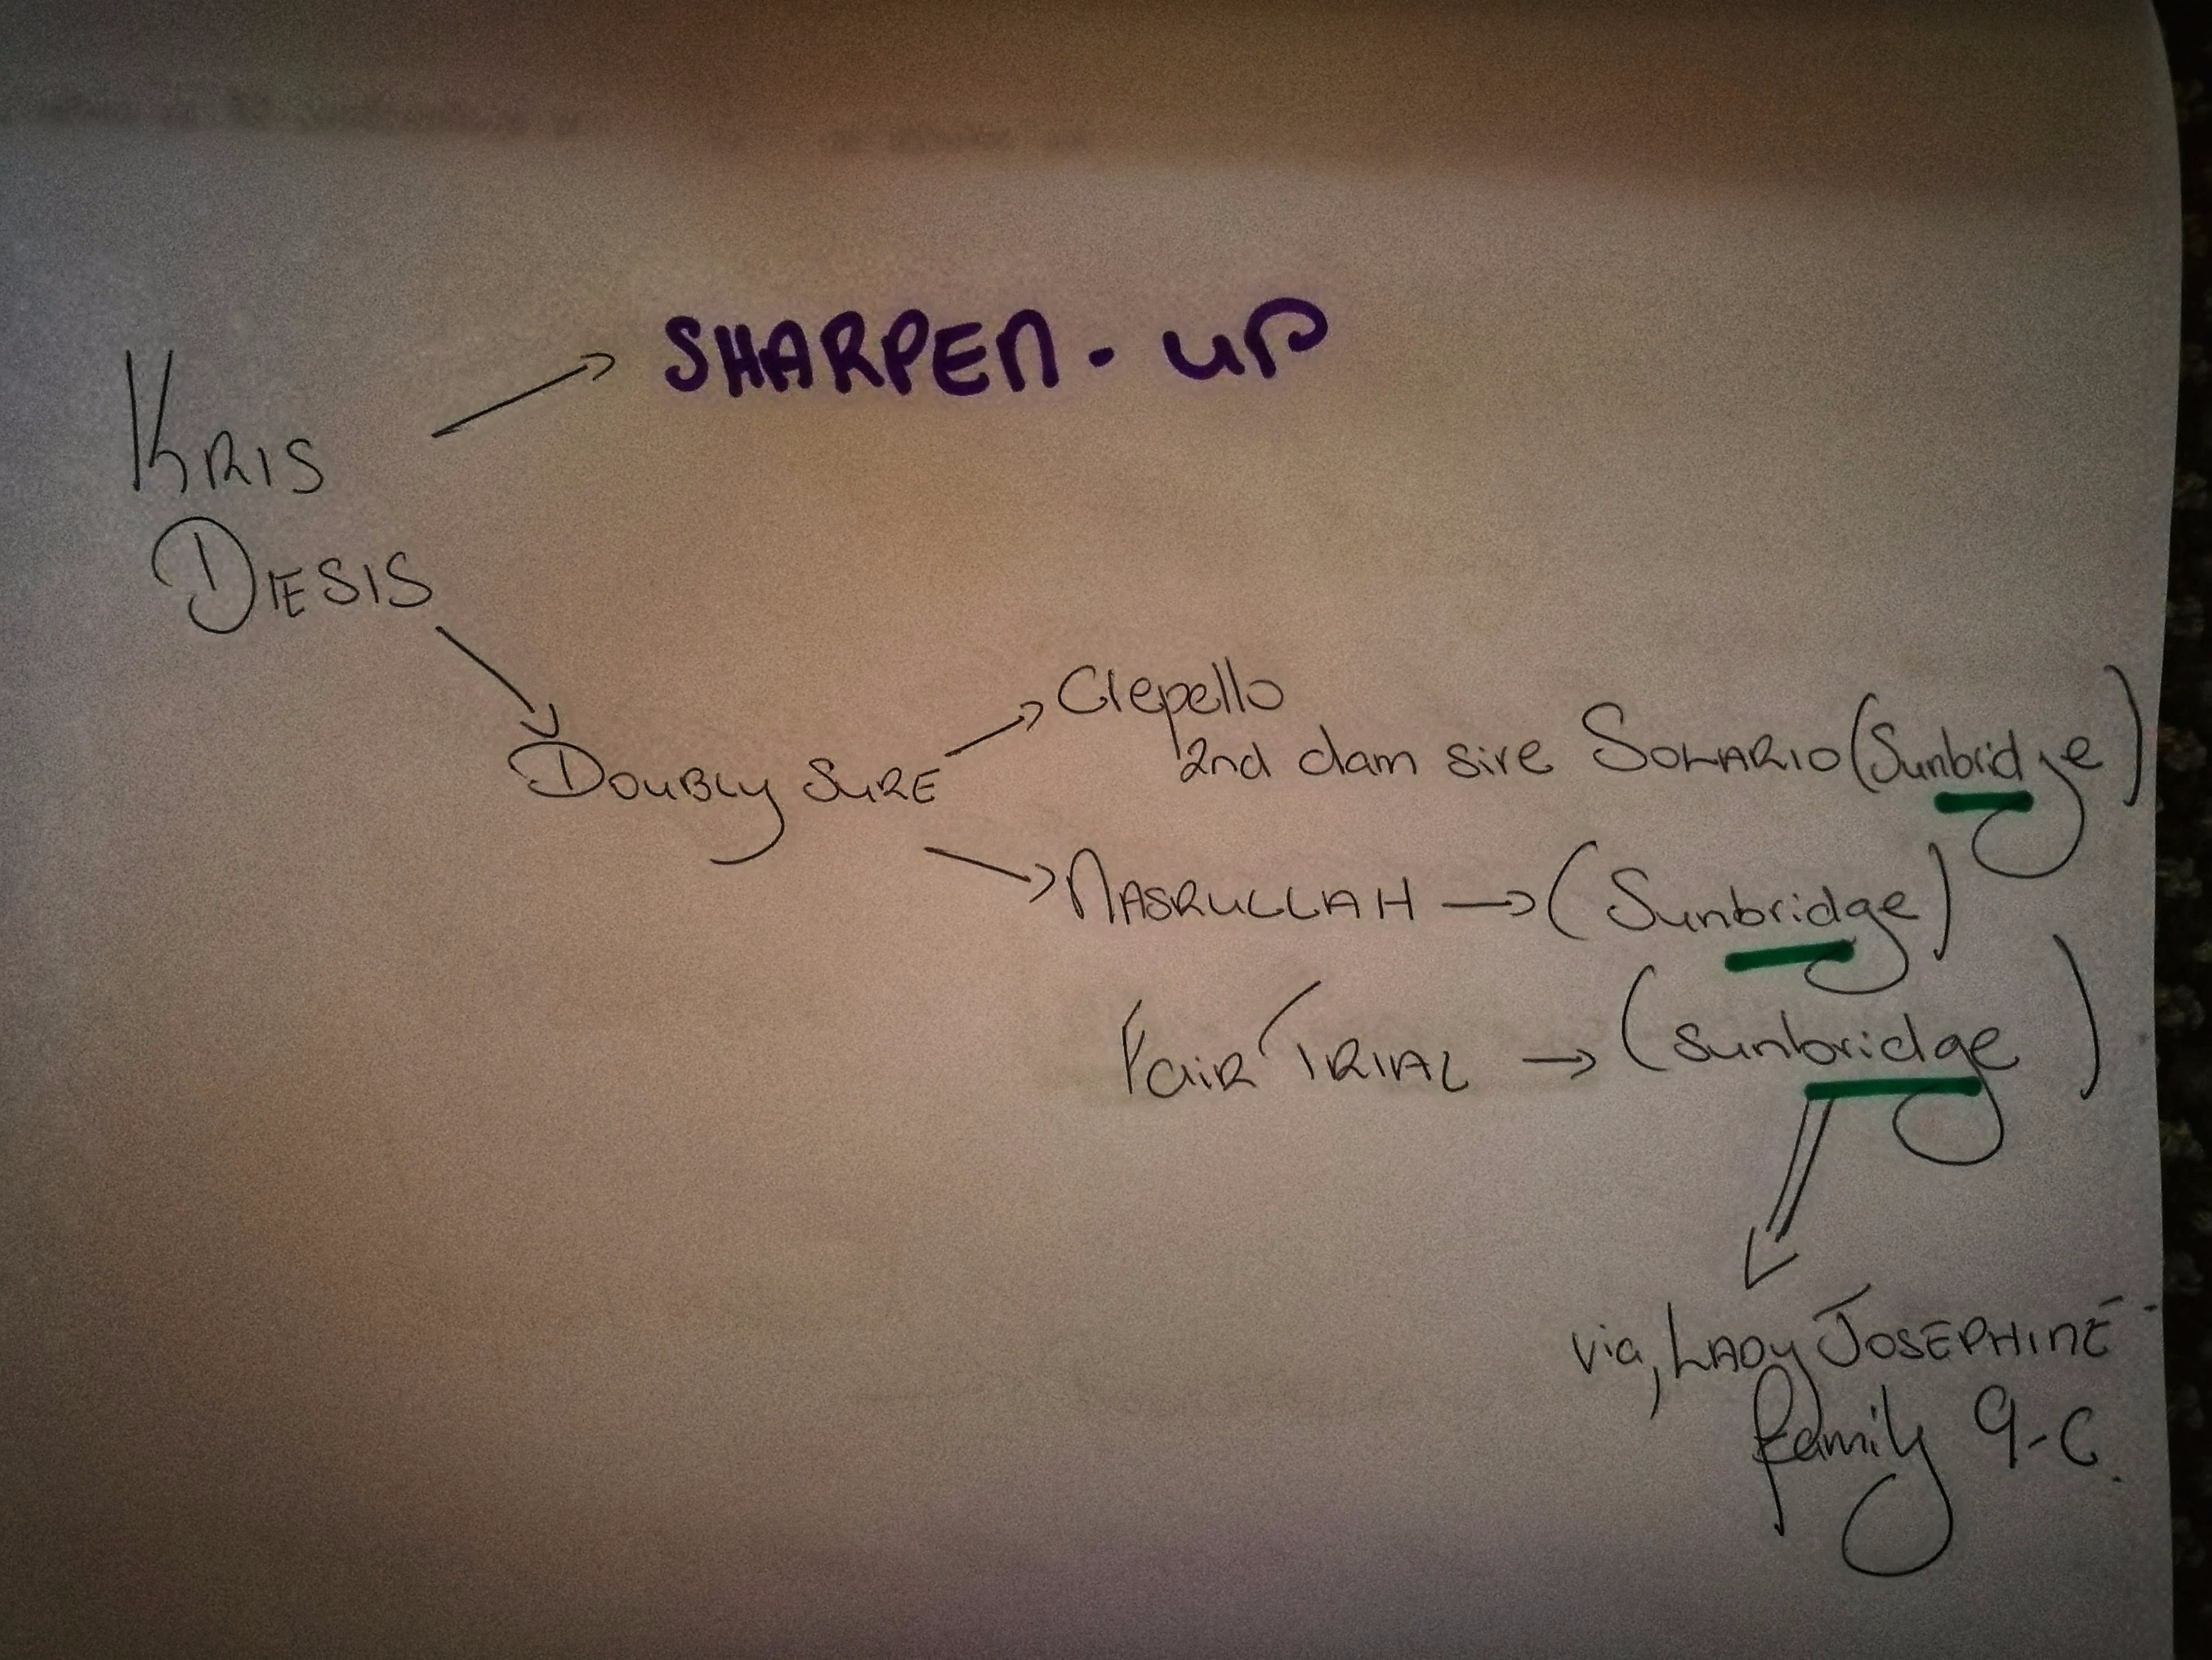 SHARPEN - UP
KRIS
DIESIS
DOUBLY SURE
Crepello
2nd dam sire SOLARIO (Sunbridge)
NASRULLAH → (Sunbridge)
FAIR TRIAL → (Sunbridge)
via, LADY JOSEPHINE
family 9-C.